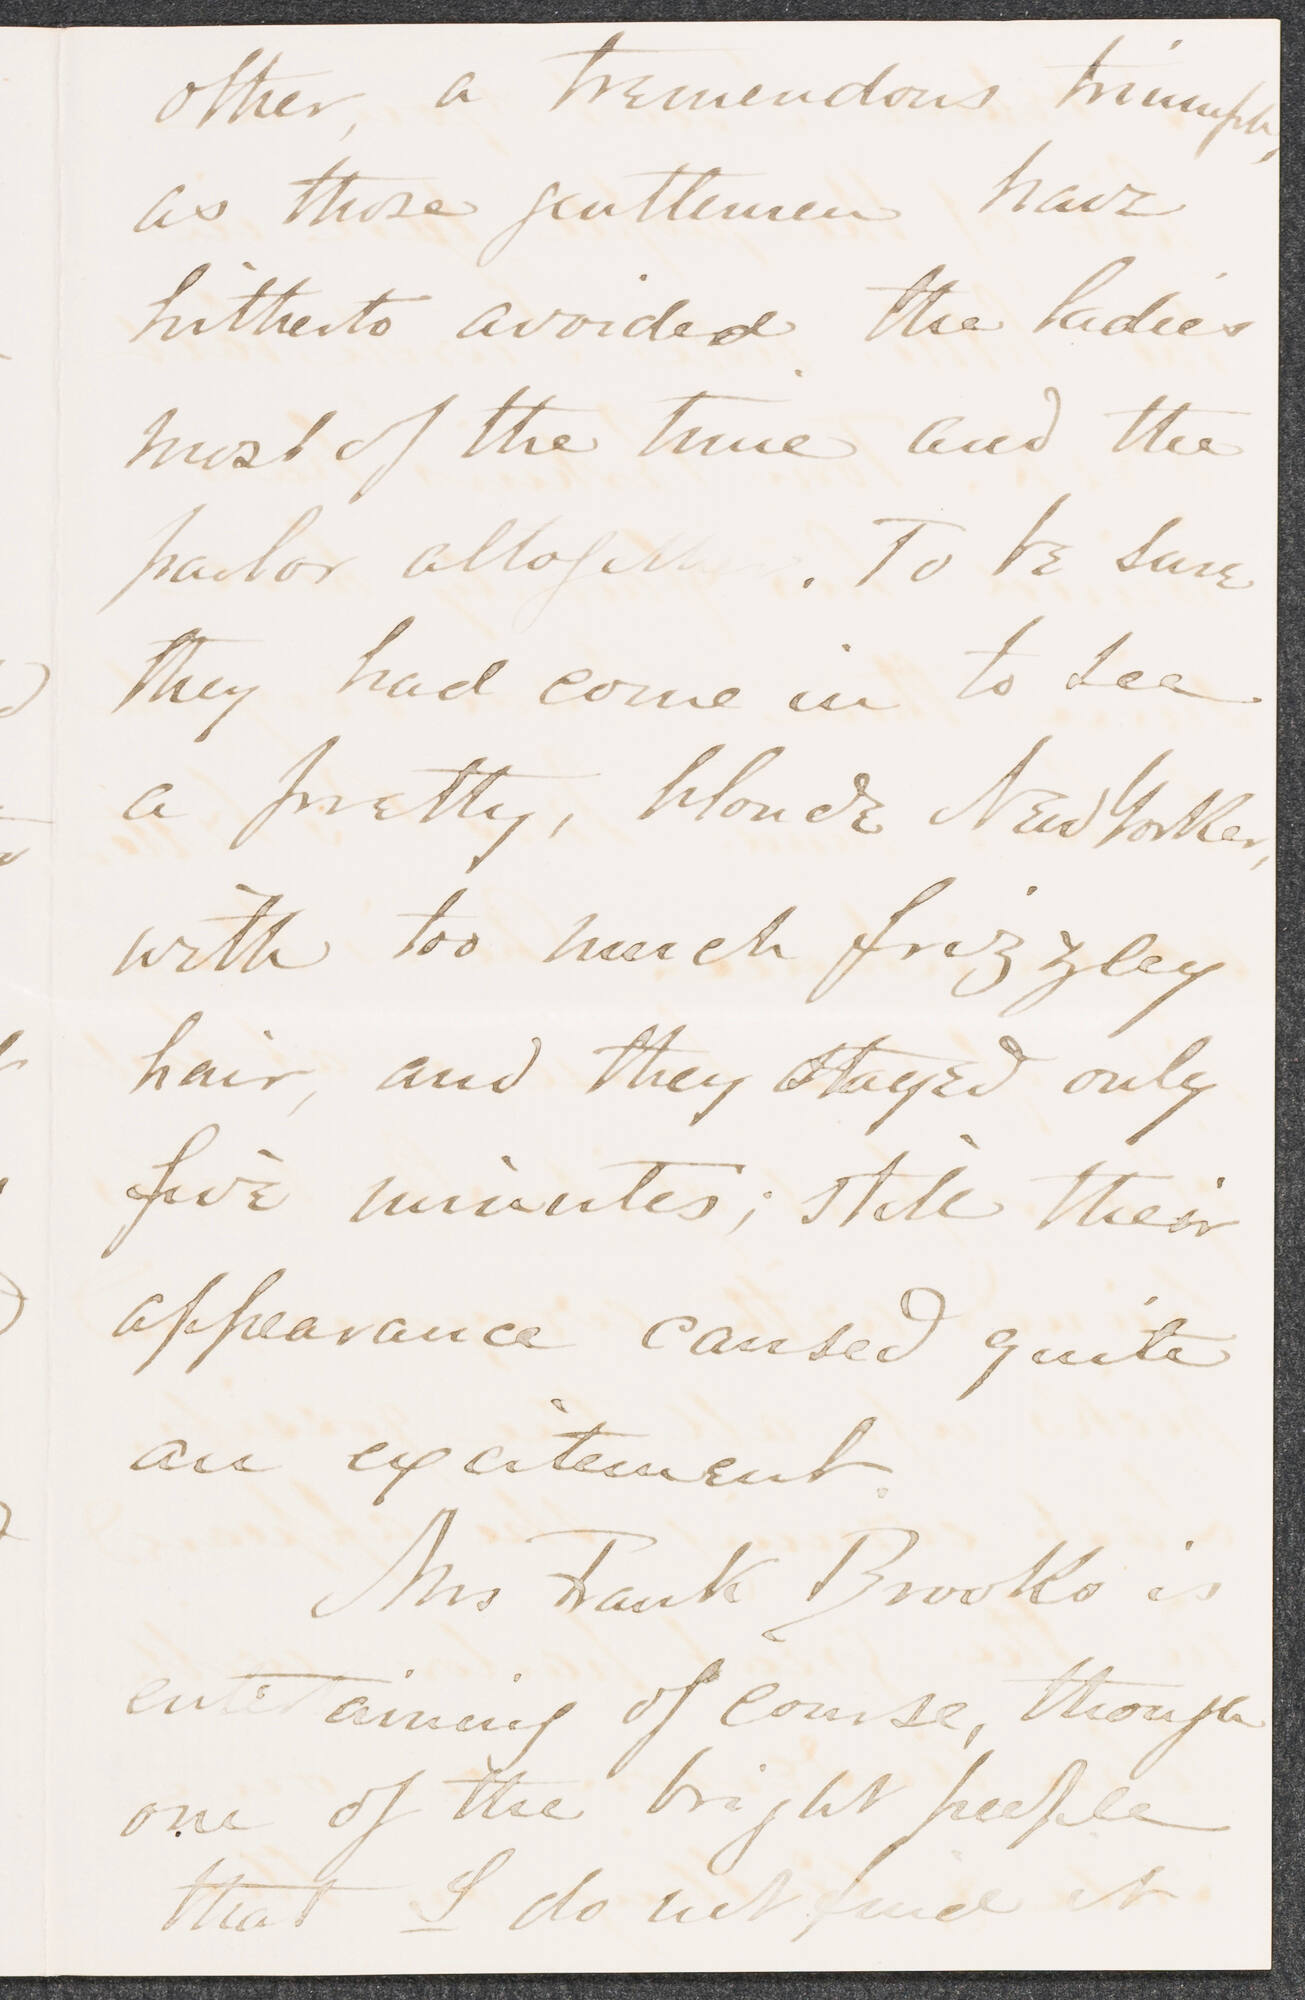 other, a tremendous triumph,
as those gentlemen have
hitherto avoided the ladies
most of the time and the
parlor altogether. To be sure
they had come in to see
a pretty, blonde New Yorker,
with too much frizzley
hair, and they stayed only
five minutes; still their
appearance caused quite
an excitement.
Mrs Frank Brooks is
entertaining of course, though
one of the bright people
that I do not find it